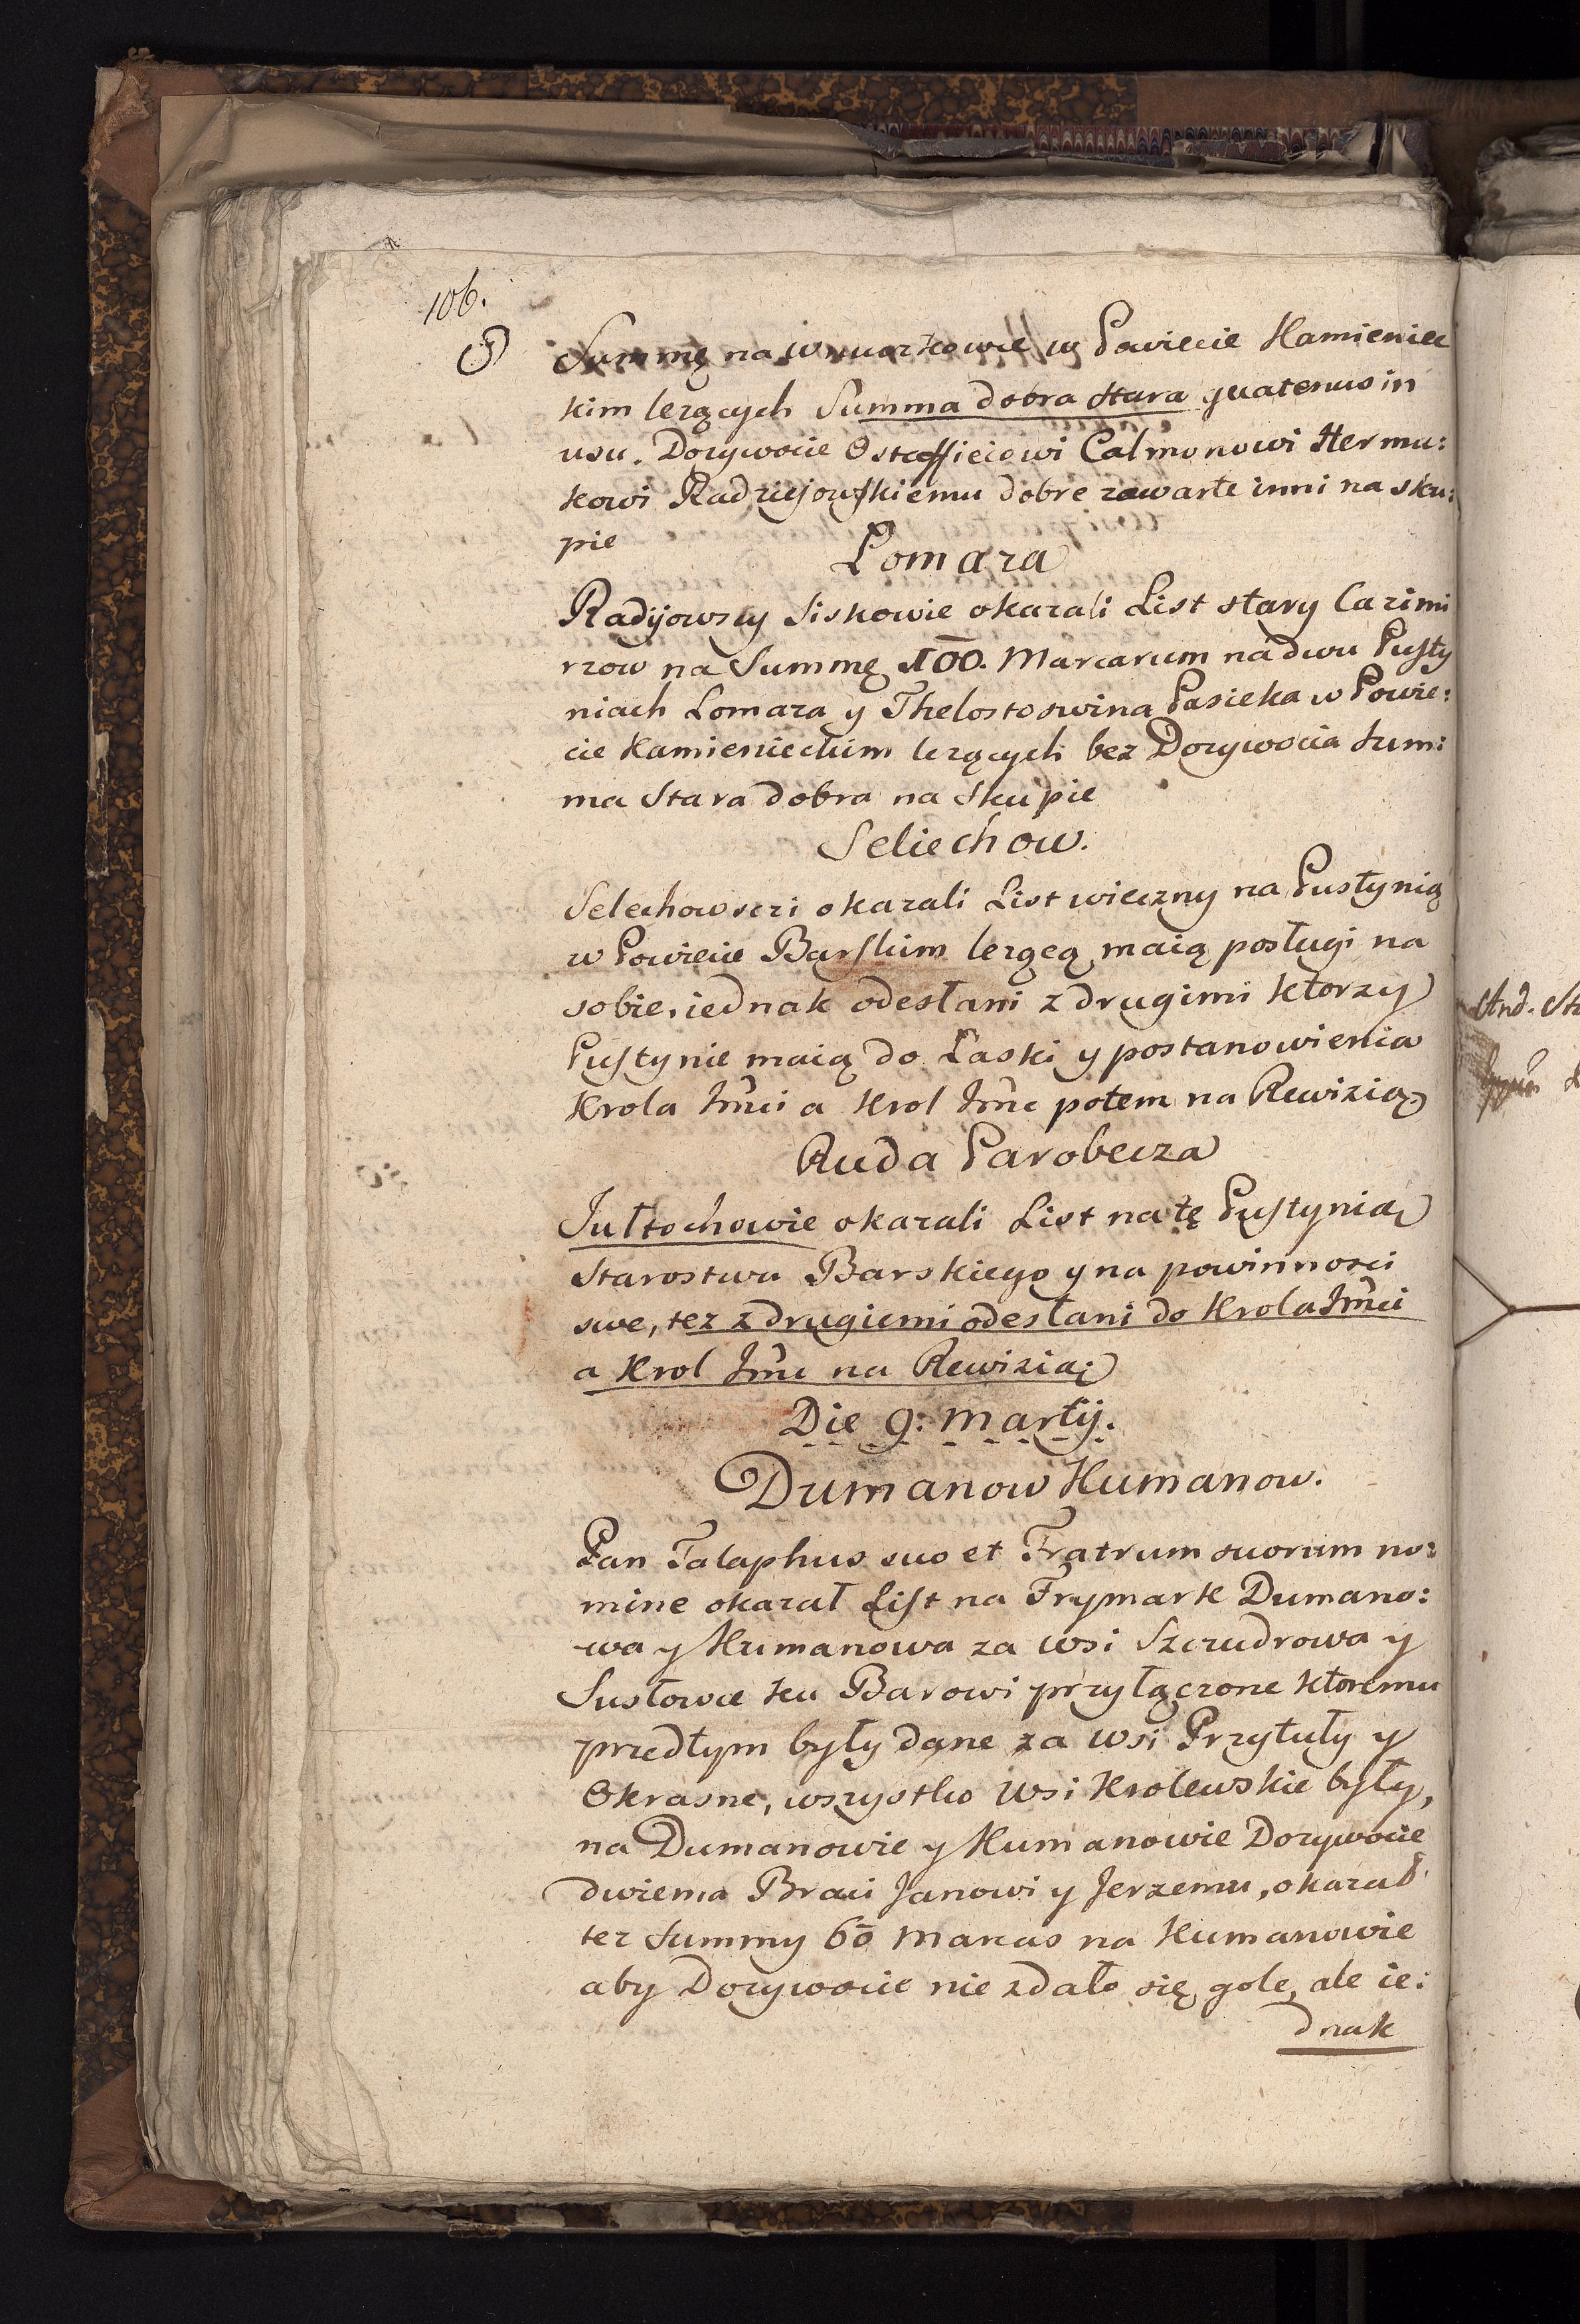 106.
Summę na w Powiecie Kamieniec
kim leząцych Summa dobra stara quatenus in
usu. Dozywocie Ostaffieiowi Calmonowi Hermu:
kowi Radziejowskiemu dobre zawarte inni na sku:
pie
Lomaza
Radijowscy Siskowie okazali List stary Cazimi
rzow na Summę 100. Marcarum na dwu Pusty
niach Lomaza y Thelostoswina Pasieka w Powie:
cie Kamienieckim lezących bez Dozywocia Sum:
ma Stara dobra na Skupie
Seliechow.
Selechowsczi okazali List wieczny na Pustynią
w Powiecie Barskim lezącą maią posługi na
sobie, iednak odesłani z drugimi ktorzy
Pustynie maią do Łaski y postanowienia
Krola Jmci a Krol Jmc potem na Rewizią
Ruda Parobecza
Jułtochowie okazali List na tę Pustynią
Starostwa Barskiego y na powinnosci
swe, tez z drugiemi odesłani do Krola Jmci
a Krol Jmc na Rewizią
Die 9. Martij.
Dumanow Humanow.
Pan Talaphus suo et Fratrum suorum no:
mine okazał List na Frymark Dumano:
wa y Humanowa za wsi Szczudrowa y
Susłowce ku Barowi przyłączone ktoremu
przedtym były dane za wsi Przytuły y
Okrasne, wszystko wsi Krolewskie były,
na Dumanowie y Humanowie Dozywocie
dwiema Braci Janowi y Jerzemu, okazał
tez Summy 60 marcas na Humanowie
aby Dozywocie nie zdało się gole, ale ie:
dnak
And.